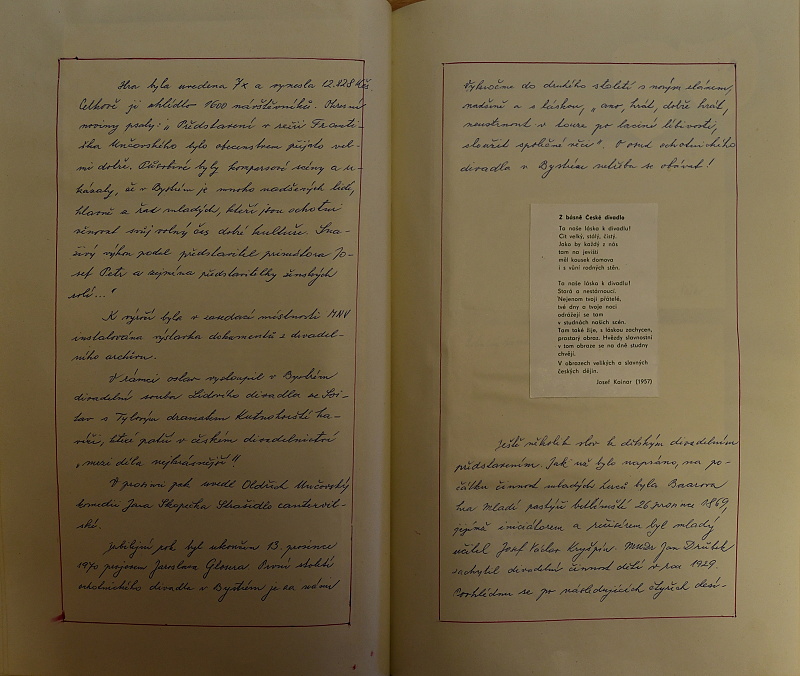 Hra byla uvedena 7x a vynesla 12.828 Kčs.
Celkově ji shlédlo 1600 návštěvníků. Okresní
noviny psaly: „Představení v režii Franti-
ška Unčovského bylo obecenstvem přijato vel-
mi dobře. Působivé byly kompersové scény a u-
kázaly, že v Bystrém je mnoho nadšených lidí,
hlavně a řad mladých, kteří jsou ochotni
věnovat svůj volný čas dobré kultuře. Sna-
živý výkon podal představitel primátora Jo-
sef Petr a zejména představitelky ženských
rolí..."
K výročí byla v zasedací místnosti MNV
instalována výstavka dokumentů z divadel-
ního archivu.
V rámci oslav vystoupil v Bystrém
divadelní soubor Lidového divadla ze Svi-
tav s Tylovým dramatem Kutnohorští ha-
víři, které patří v českém divadelnictví
„mezi díla nejkrásnější".
V prosinci pak uvedl Oldřich Unčovský
komedii Jana Skopečka Strašidlo cantervil-
ské.
Jubilejní rok byl ukončen 13. prosince
1970 projevem Jaroslava Glosera. První století
ochotnického divadla v Bystrém je za námi
Vykročme do druhého století s novým elánem,
nadšeně a s láskou, „ano, hrát, dobře hrát,
neustrnout v touze po laciné líbivosti,
sloužit společné věci". O osud ochotnického
divadla v Bystrém netřeba se obávat!
Z básně České divadlo
Ta naše láska k divadlu!
Cit velký, stálý, čistý.
Jako by každý z nás
tam na jevišti
měl kousek domova
i s vůní rodných stěn.
Ta naše láska k divadlu!
Stará a nestárnoucí.
Nejenom tvoji přátelé,
tvé dny a tvoje noci
odrážejí se tam
v studnách našich scén.
Tam také žije, s láskou zachycen,
prostarý obraz. Hvězdy slavnostní
v tom obraze se na dně studny
chvějí.
V obrazech velikých a slavných
českých dějin.
Josef Kainar (1957)
Ještě několik slov k dětským divadelním
představením. Jak už bylo napsáno, na po-
čátku činnosti mladých herců byla Baarova
hra Mladí pastýři betlémští 26. prosince 1869,
jejímž iniciátorem a režisérem byl mladý
učitel Josef Václav Kryšpín. Mudr Jan Drůbek
zachytil divadelní činnost dětí v roce 1929.
Poohlédnu se po následujících čtyřech desí-